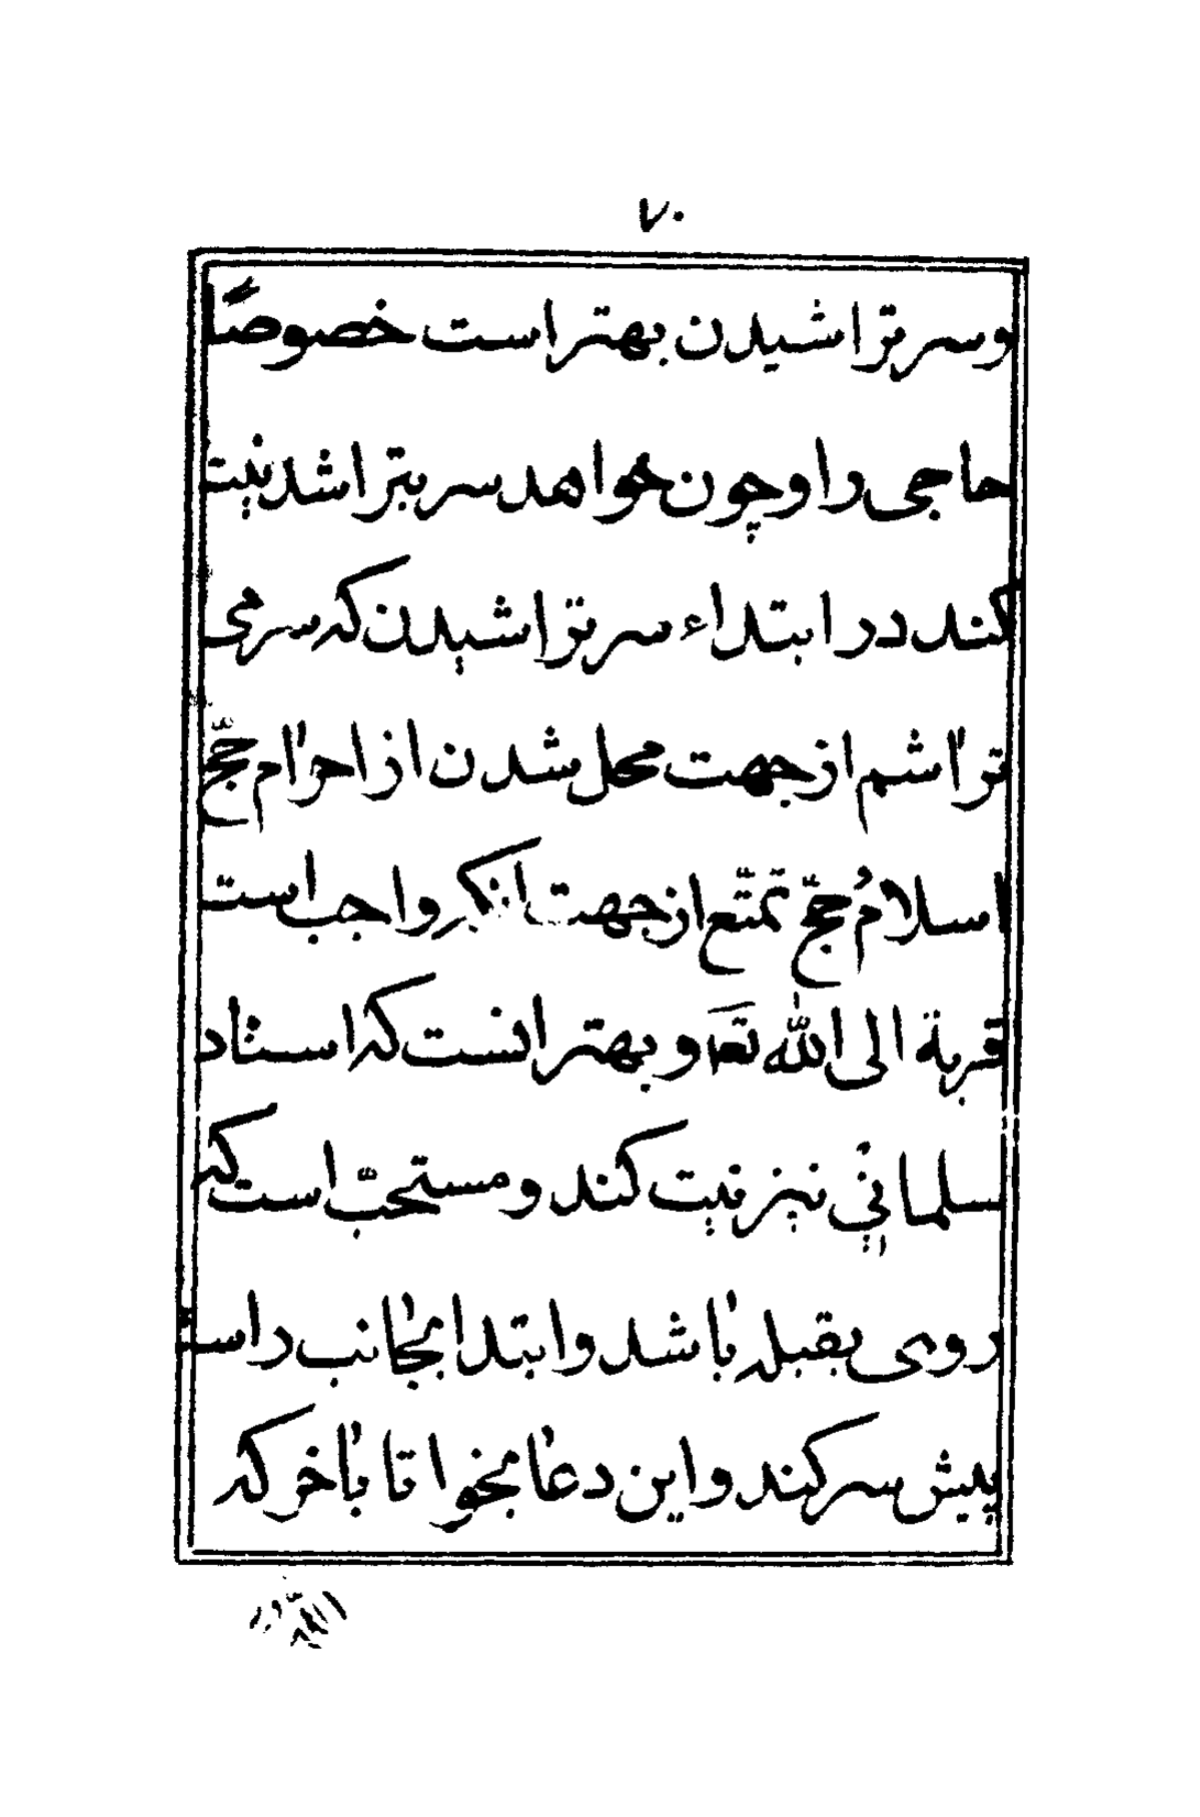 ۷۰
وسر تراشیدن بهتر است خصوصًا
حاجی را و چون خواهد سر بتراشد نیت
کند در ابتداء سر تراشیدن که سر می
تراشم از جهت محل شدن از احرام حجّ
اسلام حجّ تمتّع از جهت انکه واجب است
قربة الی الله تعه و بهتر انست که استاد
سلمانی نیز نیت کند و مستحبّ است که
روی بقبله باشد و ابتدا بجانب راست
پیش سر کند و این دعا بخواند تا باخر که
اللّهم